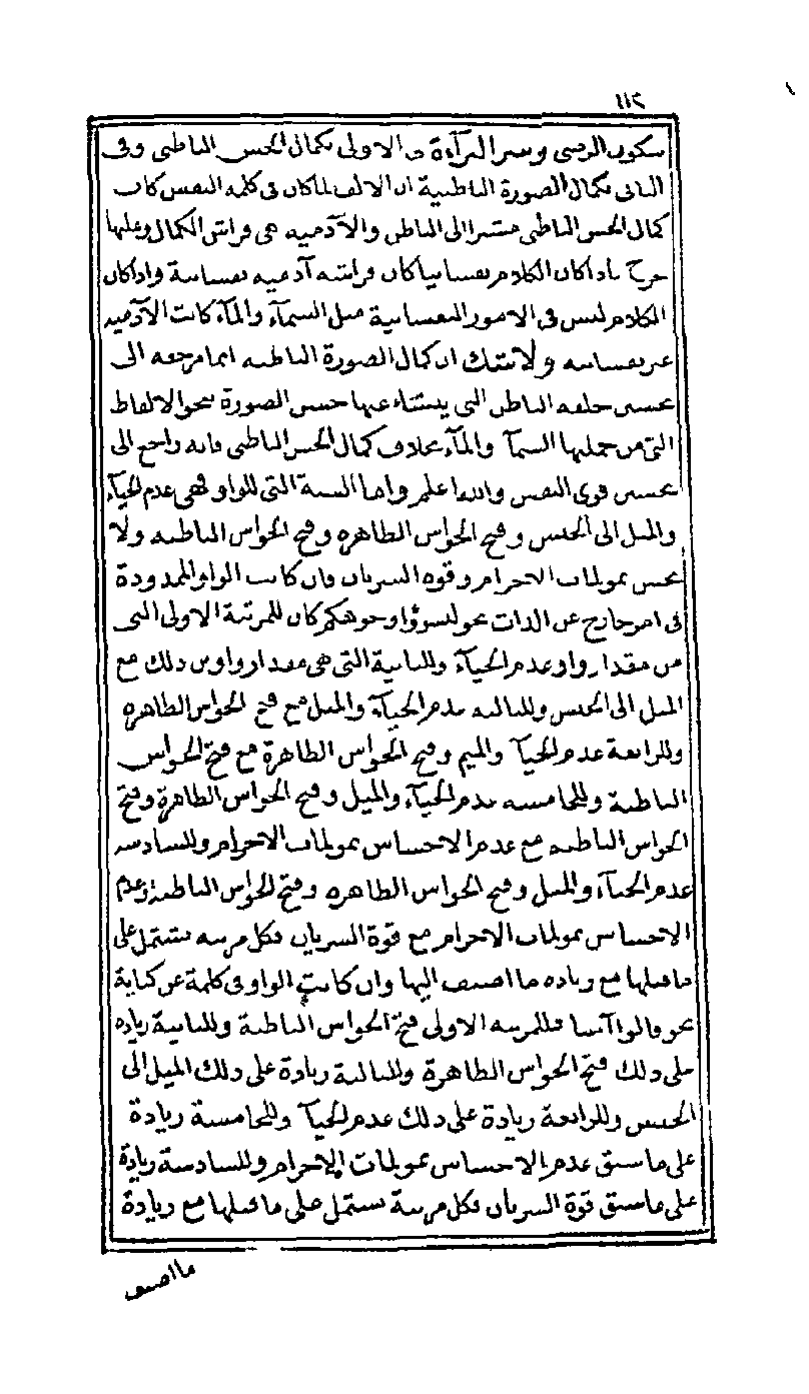 ١١٢
سكون الرضى وسر القرآءة الاولى بكمال الحس الباطنى وفى
الثانى بكمال الصورة الباطنية ان الالف لما كان فى كلمة النفس كان
كمال الحس الباطنى مشيرا الى الباطن والآدمية هى فراش الكمال وعليها
خرج فاذا كان الكلام نفسانيا كان فراشه آدمية نفسانية واذا كان
الكلام ليس فى الامور النفسانية مثل السمآء والمآء كانت الآدمية
غير نفسانية ولا شك ان كمال الصورة الباطنة انما مرجعه الى
تحسين خلقة الباطن التى ينشاء عنها حسن الصورة نحو الالفاظ
التى من جملتها السمآ والمآء بخلاف كمال الحس الباطنى فانه راجع الى
تحسين قوى النفس والله اعلم واما الستة التى للواو فهى عدم الحيآء
والميل الى الجنس وفتح الحواس الظاهرة وفتح الحواس الباطنة ولا
يحس بمولمات الاجرام وقوة السريان فان كانت الواو الممدودة
فى امر خارج عن الذات نحو ليسوؤا وجوهكم كان للمرتبة الاولى التى
من مقدار واو عدم الحيآء وللثانية التى هى مقدار واوين ذلك مع
الميل الى الجنس وللثالثة عدم الحيآء والميل مع فتح الحواس الظاهرة
وللرابعة عدم الحيآ والميم وفتح الحواس الظاهرة مع فتح الحواس
الباطنة وللخامسة عدم الحيآء والميل وفتح الحواس الظاهرة وفتح
الحواس الباطنة مع عدم الاحساس بمولمات الاجرام وللسادسة
عدم الحيآء والميل وفتح الحواس الظاهرة وفتح الحواس الباطنة وعدم
الاحساس بمولمات الاجرام مع قوة السريان فكل مرتبة تشتمل على
ما قبلها مع زيادة ما اضيف اليها وان كانت الواو فى كلمة عن كناية
نحو قالوا آمنا فللمرتبة الاولى فتح الحواس الباطنة وللثانية زيادة
على ذلك فتح الحواس الظاهرة وللثالثة زيادة على ذلك الميل الى
الجنس وللرابعة زيادة على ذلك عدم الحيآ وللخامسة زيادة
على ما سبق عدم الاحساس بمولمات الاجرام وللسادسة زيادة
على ما سبق قوة السريان فكل مرتبة تشتمل على ما قبلها مع زيادة
ما اضيف